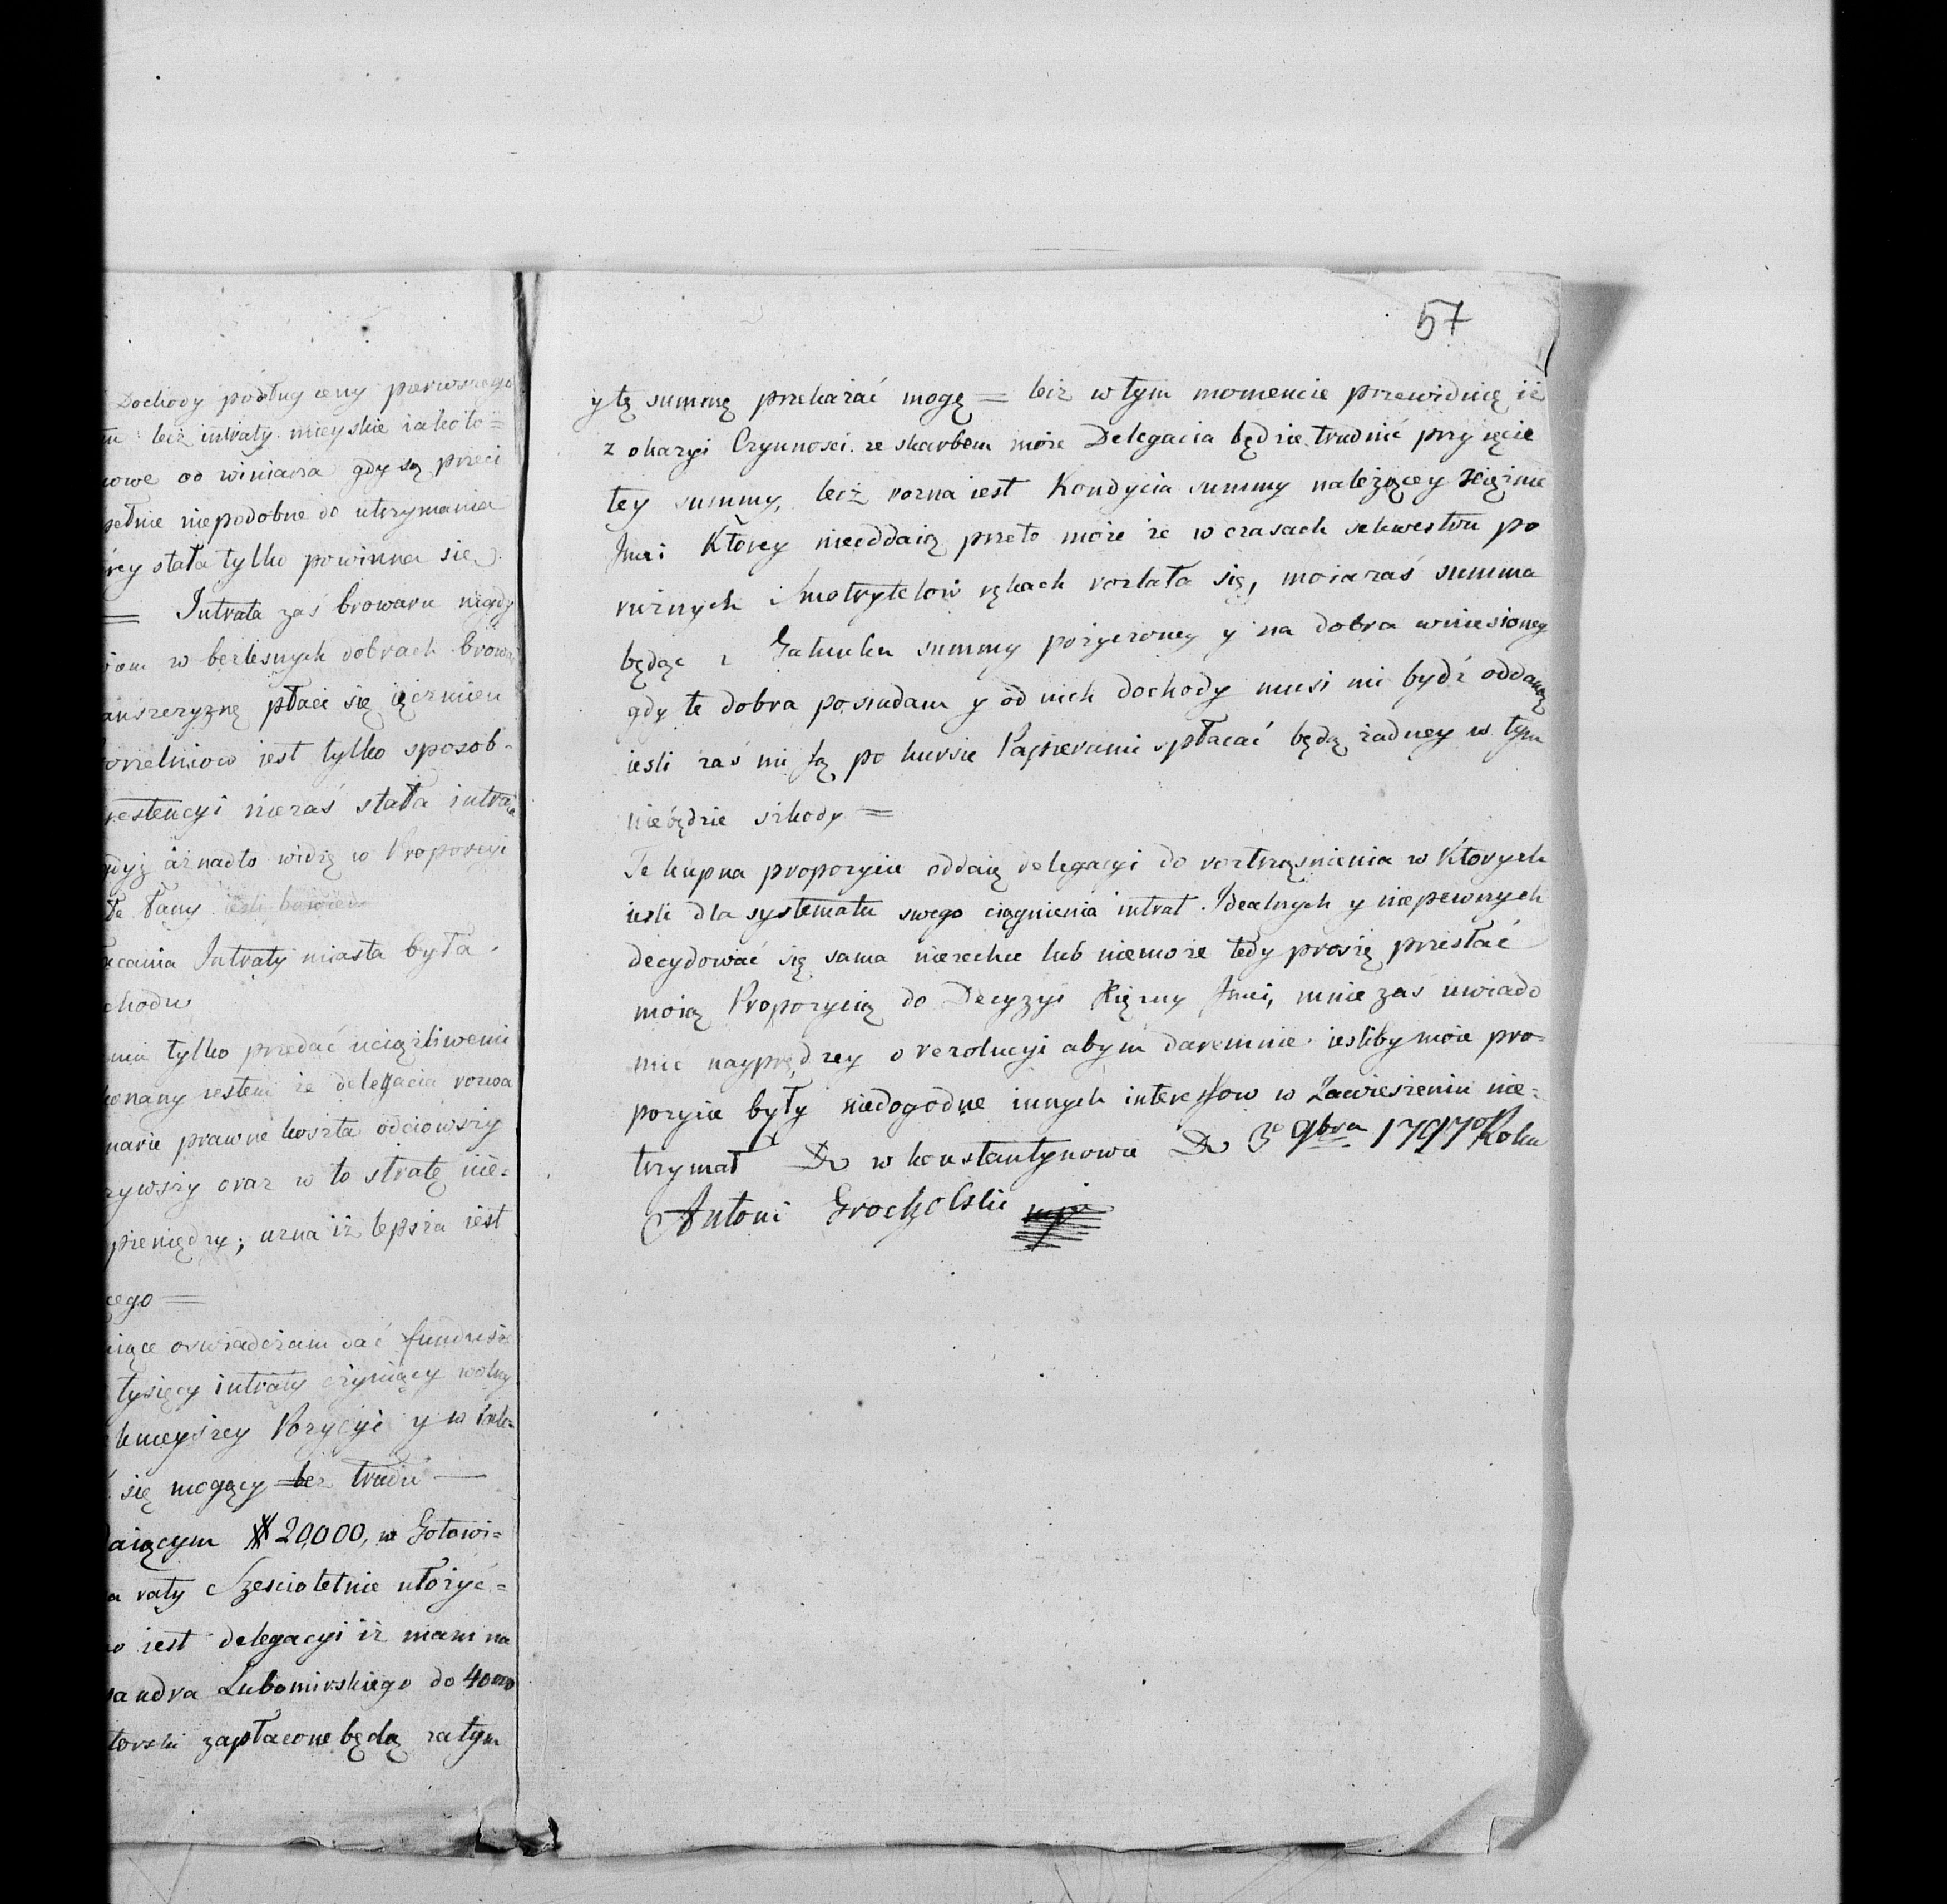 Dochody podług ceny pierwszego
lecz intraty mieyskie iakoto=
od winiarza gdy są przeci
niepodobne do utrzymania
stała tylko powinna się
= Intrata zaś browaru nigdy
w bezlesnych dobrach brow
płaci się ięczmien
iest tylko sposob-
niezaś stała intrata
aż nadto widzę w Proporcyi
Łany
Intraty miasta była
chodu
tylko przedać uciążliwemi
iestem że delegacia rozwa
prawne koszta odciowszy
oraz w to stratę nie=
pieniędzy; uzna iż lepsza iest
cego =
oswiadczam dać fundusz
tysięcy intraty czyniący wolny
Pozycyi y w
się mogący bez trudu —
aiącym # 20,000, w Gotowi=
a raty Szescioletnie ułożyć=
iest delegacyi iż mam na
andra Lubomirskiego do 40000
zapłacone będą zatym
57
y tę summę przekazać mogę = lecz w tym momencie przewidzię iż
z okazyi Czynnosci ze skarbem może Delegacia będzie trudnić przyięcie
tey summy, lecz rozna iest Kondycia summy należącey Xiężnie
Jmci Ktorey nieoddaią przeto może że w czasach sekwestru po
rożnych Smotrytelow rękach rozlała się, moia zaś summa
będąc z Gatunku summy pożyczoney y na dobra wniesioney
gdy te dobra posiadam y od nich dochody musi mi bydź oddaną
iesli zaś mi Ią po kursie Papierami spłacać będą żadney w tym
niebędzie szkody =
Te kupna propozycie oddaię delegacyi do roztrząsnienia w Ktorych
iesli dla systematu swego ciągnienia intrat Idealnych y niepewnych
decydować się sama niezechce lub niemoże tedy proszę przesłać
moią Propozycią do Decyzyi Xiężny Jmci, mnie zaś uwiado
mić nayprędzey o rezolucyi abym daremnie iesliby moie pro=
pozycie były niedogodne innych interessow w Zawieszeniu nie=
trzymał D w Konstantynowie D 5° 9bra 1797° Roku
Antoni Grocholski mp